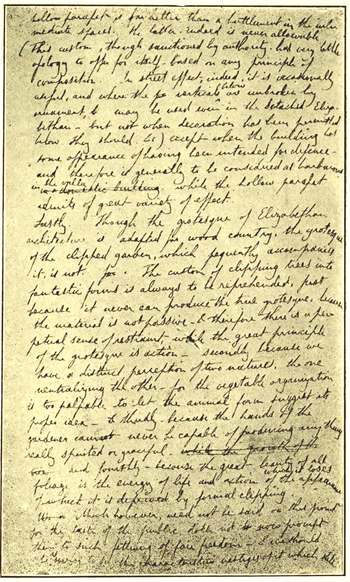 hollow parapet is far better than a battlement in the inter
mediate spaces: the latter indeed is never allowable
(This custom, though sanctioned by authority, has very little
apology to offer for itself, based on any principle of
composition. In street effect, indeed, it is occasionally
useful, and where the verticals below are unbroken by
ornament, may be used even in the detached Eliza-
bethan – but not when decoration has been permitted
below
some appearance of having been intended for defence –
and therefore is generally to be considered as barbarous
in the villa while the hollow parapet
admits of great variety of effect.
Lastly. Though the grotesque of Elizabethan
architecture is adapted for wood country, the grotesque
of the clipped garden, which frequently accompanies
it, is not so. The custom of clipping trees into
fantastic forms is always to be reprehended, first
because it never can produce the true grotesque, because
the material is not passive – & therefore there is a per-
petual sense of restraint, while the great principle
of the grotesque is action – secondly because we
have a distinct perception of two natures, the one
neutralizing the other – for the vegetable organization
is too palpable to let the animal form suggest its
proper idea – & thirdly because the hands of the
gardener cannot never be capable of producing anything
really spirited or graceful. while the growth of the
And fourthly – because the great beauty of all
foliage is the energy of life and action of the appearance
which it loses
it is deprived by formal clipping.
much however need not be said on this point
for the taste of the public